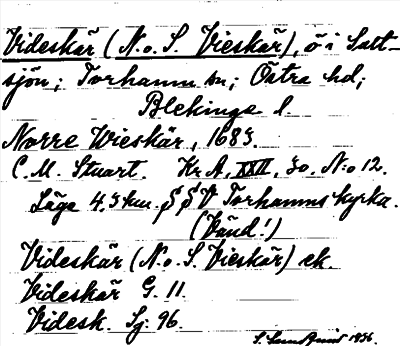 Videskär (N. o. S. Vieskär), ö i Salt-
sjön; Torhamn sn; Östra hd;
Blekinge l.
Norre Wieskär, 1683.
C. M. Stuart. Kr. A, XXII, Jo. N:o 12.
Läge 4.3 km. S S V Torhamns kyrka.
(Vänd!)
Videskär (N. o. S. Vieskär) ek.
Videskär G. 11.
Videsk. Sj. 96.
1936.